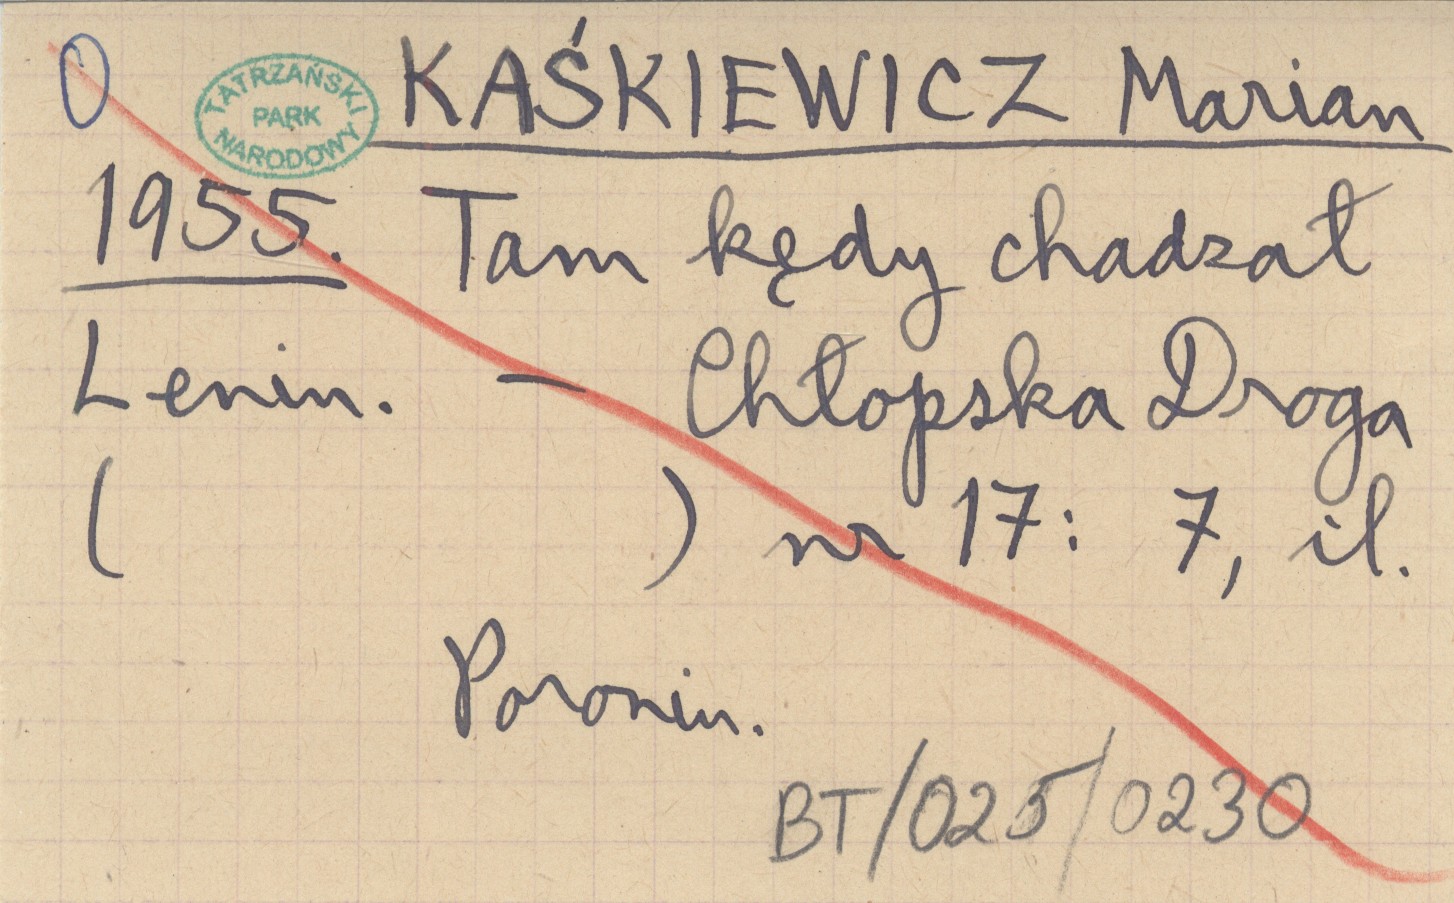 0 TATRZAŃSKI PARK NARODOWY KAŚKIEWICZ Marian
1955. Tam kędy chadzał
Lenin. — Chłopska Droga
( ) nr 17: 7, il.
Poronin.
BT/025/0230